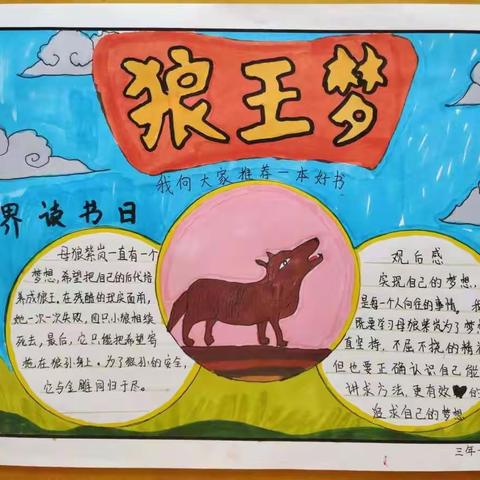 狼王梦
我向大家推荐一本好书
界读书日
母狼紫岚一直有一个
梦想,希望把自己的后代培
养成狼王,在残酷的现实面前,
她一次一次失败,四只小狼相继
死去,最后,它只能把希望寄
托在狼孙身上,为了狼孙的安全,
它与金雕同归于尽。
观后感
实现自己的梦想,
是每个人向往的事情。我
既要学习母狼紫岚为了梦想
直坚持,不屈不挠的精
但也要正确认识自己能
讲求方法,更有效的
追求自己的梦想
三年